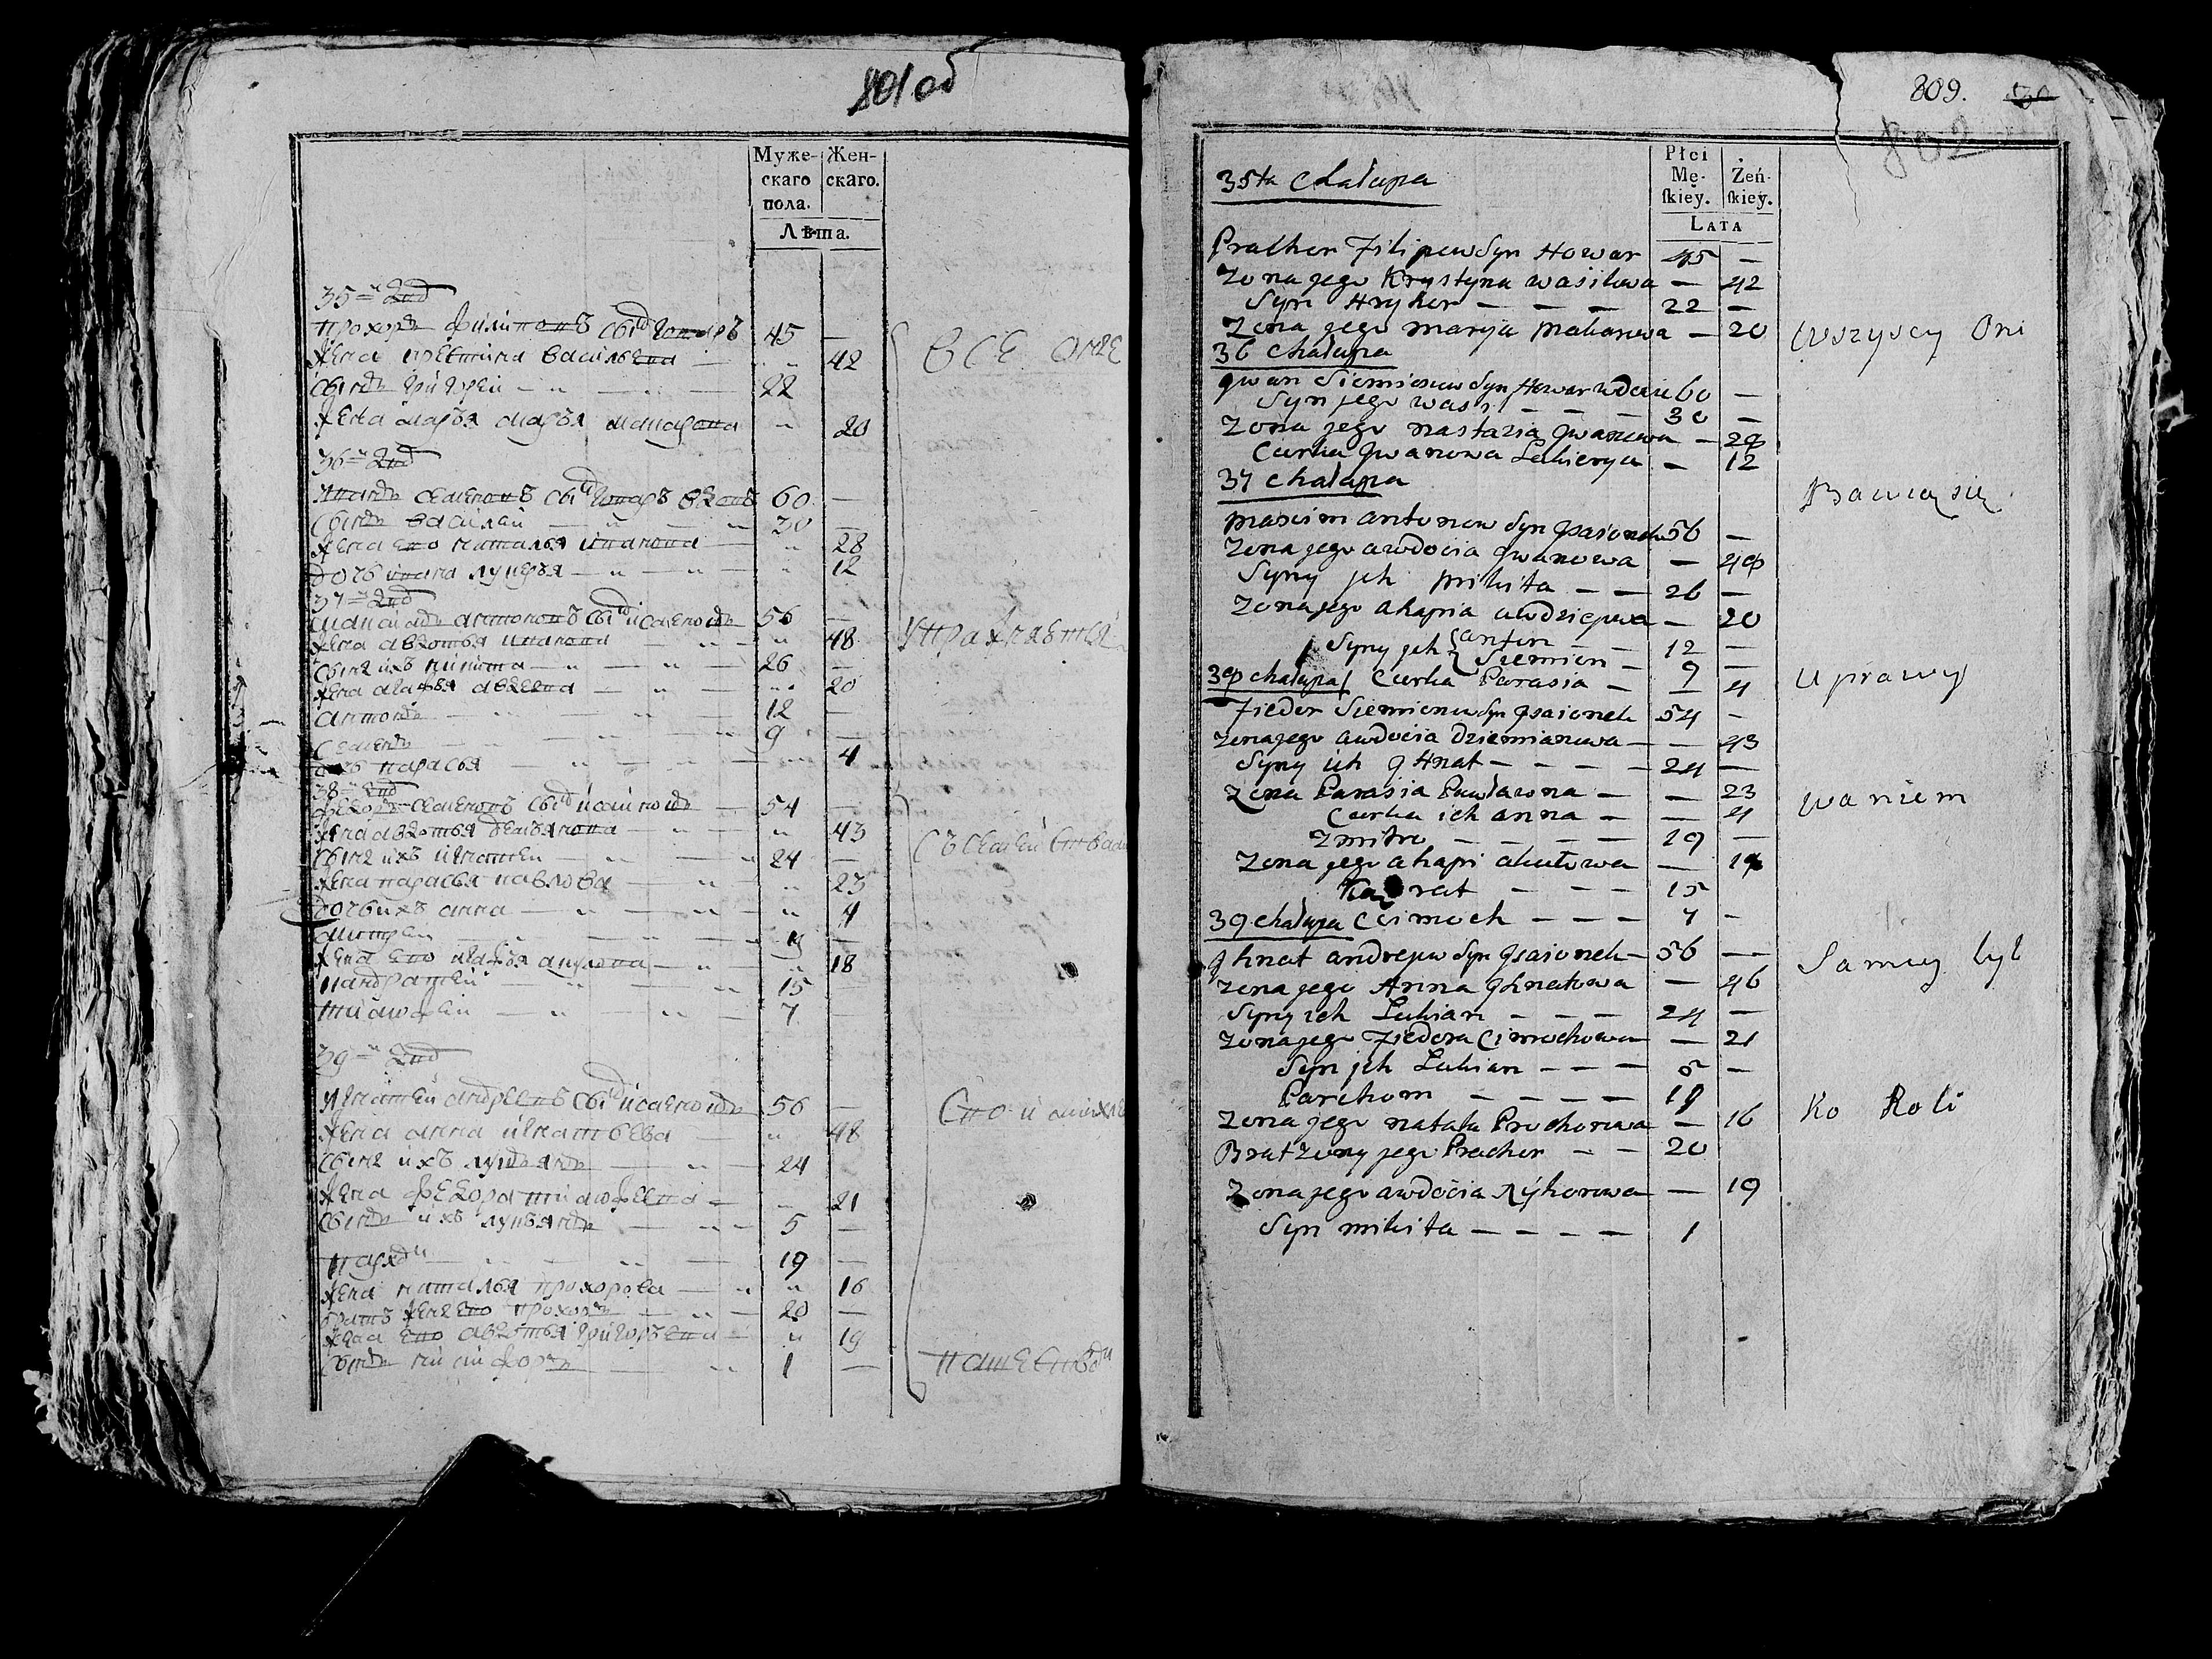 801 об
Муже- Жен-
скаго скаго.
пола.
Лѣта.
35й двор
Прохоръ Филиповъ сынъ говаръ 45 —
жена кристина васильева — 42
сынъ григорей 22
жена марья марья макарова 20
36й двор
Иванъ семеновъ сынъ говаръ вдовъ 60 —
сынъ василей 30 —
жена ево наталья иванова 28
дочь ивана лукерья 12
37й двор
Максимъ антоновъ сынъ 56 —
жена авдотья иванова 48
сынъ ихъ никита 26 —
жена агафья авдеева 20
антонъ 12
семенъ 9 —
дочь парасья 4
38й двор
федоръ семеновъ сынъ 54 —
жена авдотья демьянова 43
сынъ ихъ игнатей 24 —
жена парасья павлова 23
дочь ихъ анна 4
дмитрей 19 —
жена ево агафья 18
кандратей 15
тимофей 7
39й двор
Игнатей андреевъ сынъ 56 —
жена анна игнатьева 48
сынъ ихъ лукьянъ 24
жена федора тимофеева 21
сынъ ихъ лукьянъ 5 —
19 —
жена наталья прохорова 16
братъ жены ево прохоръ 20 —
жена ево авдотья григорьева 19
сынъ никифоръ 1 —
все оне
упражняются
809.
802
35ta Chałupa
Płci
Mę- Żeń-
skiey. skiey.
LATA
Prachor Filipow Syn Howar 45 —
Zona jego Krystyna wasilowa — 42
Syn Hryhor — — — 22 —
Zona jego maryja makarowa — 20
36 Chałupa
Jwan Siemionow Syn Howar wdowiec 60 —
Syn jego wasil — — — 30 —
Zona jego nastazia Jwanowa — 28
Curka Jwanowa Lukierya — 12
37 chałupa
maxim antonow Syn Jsaionek 56 —
Zona jego awdocia Jwanowa — 48
Syny jch mikita — — 26 —
Zona jego ahapia awdziejewa — 20
Syny jch anton — — 12 —
Siemion — 9 —
38 chałupa Curka Parasia — — 4
Fiedor Siemionow Syn Jsaionek 54 —
Zona jego awdocia Dziemianowa — — 43
Syny ich JHnat — — — — 24 —
Zona Parasia Pawławna — — 23
Curka ich anna — — 4
Zmitro — — — — 19 —
Zona jego ahapi — 18
— — — 15
39 chałupa Cimoch — — — 7 —
Jhnat andrejew Syn Jsaionek — 56 —
Zona jego Anna Jhnatowa — 46
Syny ich Lukian — — — 24 —
Zona jego Fiedora Cimochowa — 21
Syn jch Lukian — — — 5 —
Parchom — — — — 19
Zona jego natala Prochorowa — 16
Brat Zony jego Prachor — — 20
Zona jego awdocia Ryhorowa — 19
Syn mikita — — — — 1
Wszyscy Oni
Bawią się
Uprawy
waniem
Samey tyl
Ko Roli